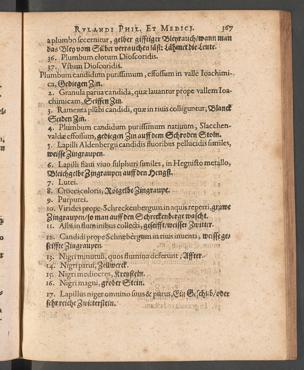 RVLANDI PHIL. ET MEDICI. 367
a plumbo secernitur, gelber gifftiger Bleyrauch/wann man
das Bley vom Silber verrauchen läst: Lähmet die Leute.
36. Plumbum elotum Dioscoridis.
37. Vstum Dioscoridis.
Plumbum candidum purissimum, effossum in valle Ioachimi-
ca, Gediegen Zin.
2. Granula parua candida, quæ lauantur prope vallem Ioa-
chimicam, Seiffen Zin.
3. Ramenta plūbi candidi, quæ in riuis colliguntur, Blanck
Seiden Zin.
4. Plumbum candidum purissimum natiuum, Slaccben-
valdæ effossum, gediegen Zin auff dem Schroden Stein.
5. Lapilli Aldenbergii candidis fluoribus pellucidis similes,
weisse Zingraupen.
6. Lapilli flaui viuo sulphuri similes, in Hegnisto metallo,
Bleichgelbe Zingraupen auff den Hengst.
7. Lutei.
8. Crocei coloris, Rotgelbe Zingraupe.
9. Purpurei.
10. Virides prope Schreckenbergum in aquis reperti, grawe
Zingraupen/so man auff den Schreckenberge wäscht.
11. Albi in flum inibus collecti, geseifft/weisser Zwitter.
12. Candidi prope Schnebergum in riuis inuenti, weisse ge-
seiffte Zingraupen.
13. Nigri minutuli, quos flumina deferunt, Affter.
14. Nigri parui,
15. Nigri mediocres,
16. Nigri magni, grober Stein.
17. Lapillus niger omnino suus & purus, Ein Geschüb/oder
sehr reiche Zwitterstein.